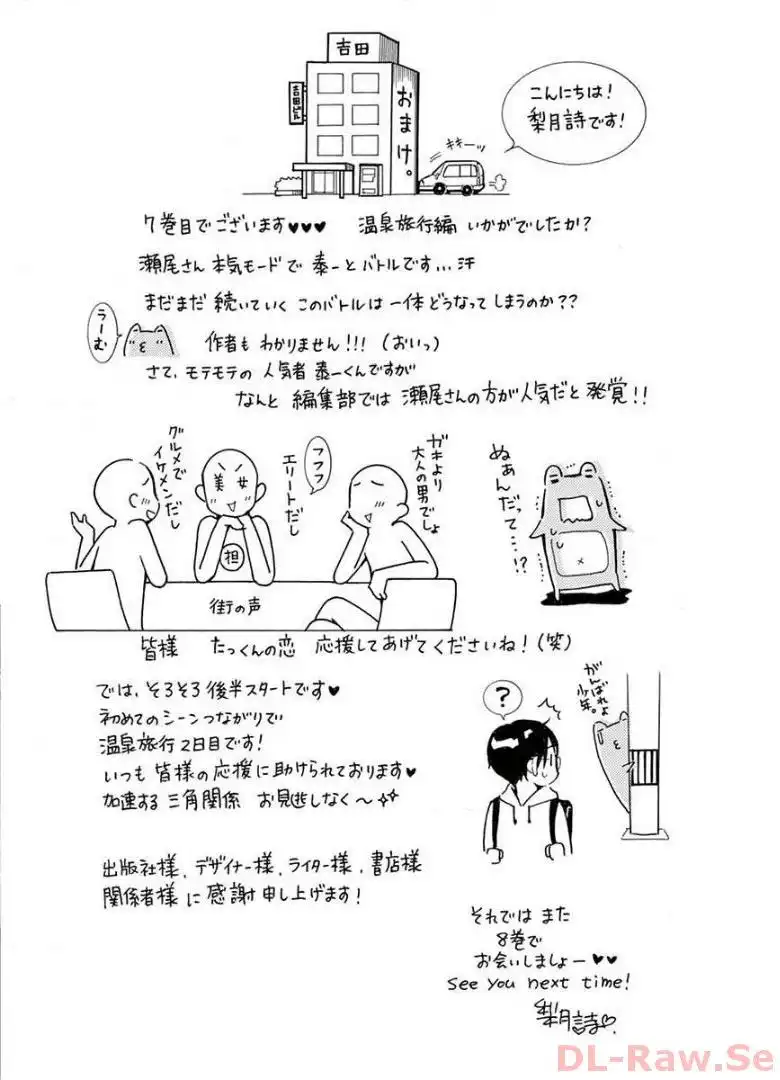 吉田
吉田ビル
おまけ。
キキーッ
こんにちは!
梨月詩です!
7巻目でございます♥♥♥ 温泉旅行編 いかがでしたか?
瀬尾さん 本気モードで 泰一とバトルです...汗
まだまだ 続いていく このバトルは 一体どうなって しまうのか??
うーむ
作者も わかりません!!!(おいっ)
さて、モテモテの 人気者 泰一くんですが
なんと 編集部では 瀬尾さんの方が人気だと 発覚!!
グルメで
イケメンだし
美女
担
フフフ
エリートだし
ガキより
大人の男でしょ
街の声
ぬぁんだって...!?
皆様 たっくんの恋 応援してあげてくださいね!(笑)
では、そろそろ 後半スタートです♥
初めてのシーンつながりで
温泉旅行2日目です!
いつも 皆様の応援に助けられております♥
加速する 三角関係 お見逃しなく〜✧✧
?
がんばれよ
少年。
出版社様、デザイナー様、ライター様、書店様
関係者様に 感謝申し上げます!
それでは また
8巻で
お会いしましょー♥♥
see you next time!
梨月詩♡.
DL-Raw.Se